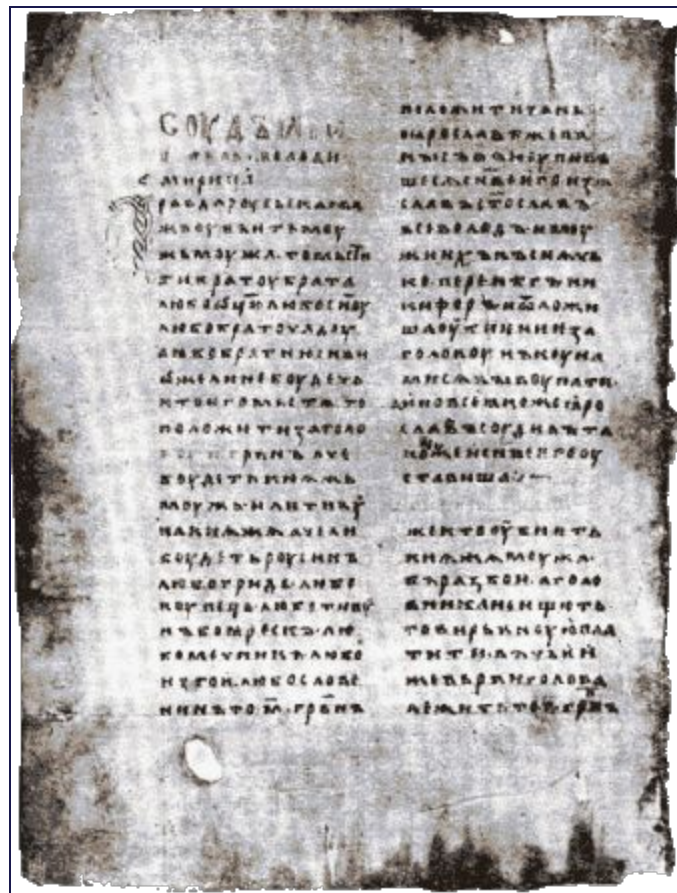 СОУДЪ
володи
мирицѧ
равда роусьскаꙗ а
жь оубиѥть моу
жь моужа то мьсти
ти братоу брата
любо ѡц҃ю любо сн҃оу
любо браточѧдоу
любо братню сн҃ви
ѡже ли не боудеть
кто ѥго мьстѧ то
положити за голо
воу гр҃внъ аче
боудеть кнѧжь
моужь или тивоу
на кнѧжа аче ли
боудеть роусинъ
любо гридь любо
коупець любо тивоу
нъ боꙗрескъ лю
бо мечникъ любо
изгои любо слове
нинъ то м҃ гр҃внъ
положити за нь
по ꙗрославѣ же па
кы съвъкоупивъ
шесѧ сн҃ве ѥго изѧ
славъ ст҃ославъ
всеволодъ и моу
жи ихъ къснѧчь
ко перенѣгъ ни
кифоръ и ѿложи
ша оубиѥниѥ за
головоу нъ коуна
ми сѧ выкоупати
ино все ꙗкоже ꙗро
славъ соудилъ та
коже и сн҃ве ѥго оу
ставиша
же кто оубиѥть
кнѧжа моужа
въ разбои а голо
вника не ищють
то вирьвноую пла
тити въ чьѥи
же вьрви голова
лежить то п҃ гр҃внъ